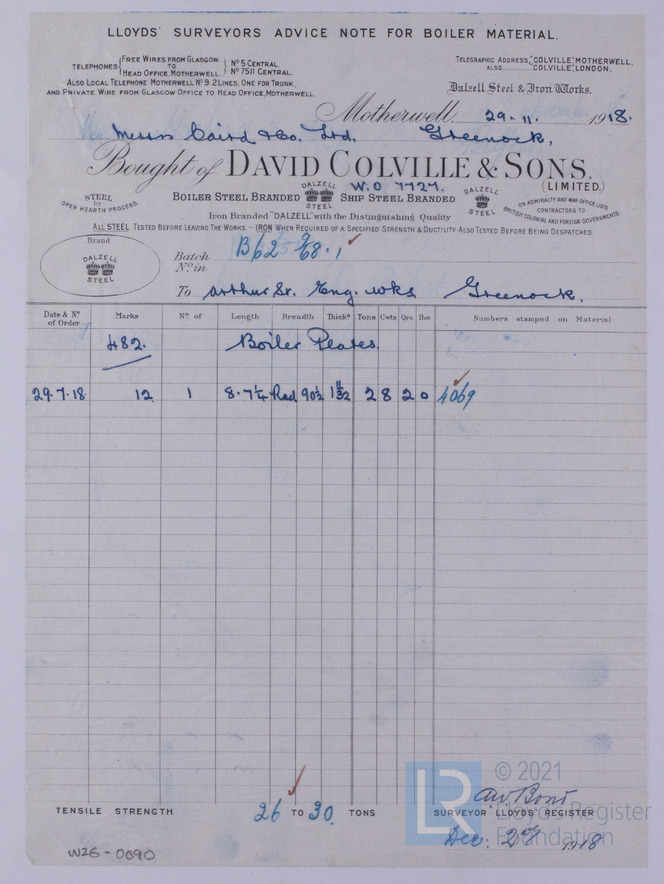 LLOYDS' SURVEYORS ADVICE NOTE FOR BOILER MATERIAL.
TELEPHONES { FREE WIRES FROM GLASGOW TO HEAD OFFICE, MOTHERWELL. } Nº 5 CENTRAL. Nº 7511 CENTRAL.
ALSO LOCAL TELEPHONE MOTHERWELL Nº 9. 2 LINES, ONE FOR TRUNK,
AND PRIVATE WIRE FROM GLASGOW OFFICE TO HEAD OFFICE, MOTHERWELL.
TELEGRAPHIC ADDRESS, "COLVILLE", MOTHERWELL.
ALSO "COLVILLE", LONDON.
Dalzell Steel & Iron Works,
Motherwell, 29.11. 1918.
Messrs Caird & Co. Ltd. Greenock.
Bought of DAVID COLVILLE & SONS.
(LIMITED.)
W.O 7727.
STEEL by OPEN HEARTH PROCESS.
BOILER STEEL BRANDED DALZELL STEEL SHIP STEEL BRANDED DALZELL STEEL
ON ADMIRALTY AND WAR OFFICE LISTS
CONTRACTORS TO
BRITISH, COLONIAL AND FOREIGN GOVERNMENTS.
Iron Branded "DALZELL" with the Distinguishing Quality
ALL STEEL TESTED BEFORE LEAVING THE WORKS - IRON WHEN REQUIRED OF A SPECIFIED STRENGTH & DUCTILITY ALSO TESTED BEFORE BEING DESPATCHED.
Brand
DALZELL
STEEL
Batch Nº in B62 68.1
To Arthur St. Eng. Wks Greenock.
Date & Nº of Order Marks Nº of Length Breadth Thickˢ Tons Cwts Qrs lbs Numbers stamped on Material
482. Boiler Plates.
29.7.18. 12 1 8.7¼ Rad 90½ 1 11/32 2 8 2 0 4069
TENSILE STRENGTH 26 TO 30 TONS
SURVEYOR LLOYDS' REGISTER
Dec. 2nd 1918
W26-0090
LR
© 2021
Lloyd's Register
Foundation